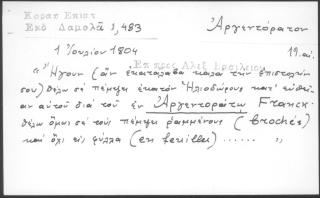 Κοραῆ Επιστ
Εκδ Δαμαλᾶ 1,483
Ἀργεντόρατον
1 Ἰουλίου 1804
19. αἰ.
Επ προς Αλεξ Βασιλειου
« Ἤγουν (ἂν ἐκατάλαβα καλὰ τὴν ἐπιστολήν
σου) θέλω σὲ πέμψει ἑκατὸν Ἡλιοδώρους κατ' εὐθεῖ-
αν αὐτοῦ διὰ τοῦ ἐν Ἀργεντοράτῳ Franck.
θέλω ὅμως σὲ τοὺς πέμψει ῥαμμένους (brochés)
καὶ ὄχι εἰς φύλλα (en feuilles) ...... »